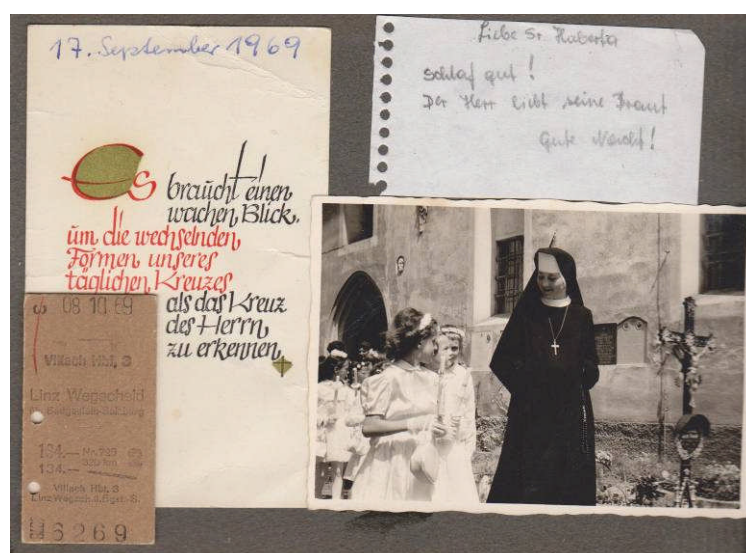 17. September 1969
Es braucht einen
wachen Blick,
um die wechselnden
Formen unseres
täglichen Kreuzes
als das Kreuz
des Herrn
zu erkennen
Liebe Sr. Huberta
schlaf gut!
Der Herr liebt seine Braut
Gute Nacht!
08 10 69
Villach Hbf, S
Linz Wegscheid
134.—
134.—
Villach Hbf, S
6269